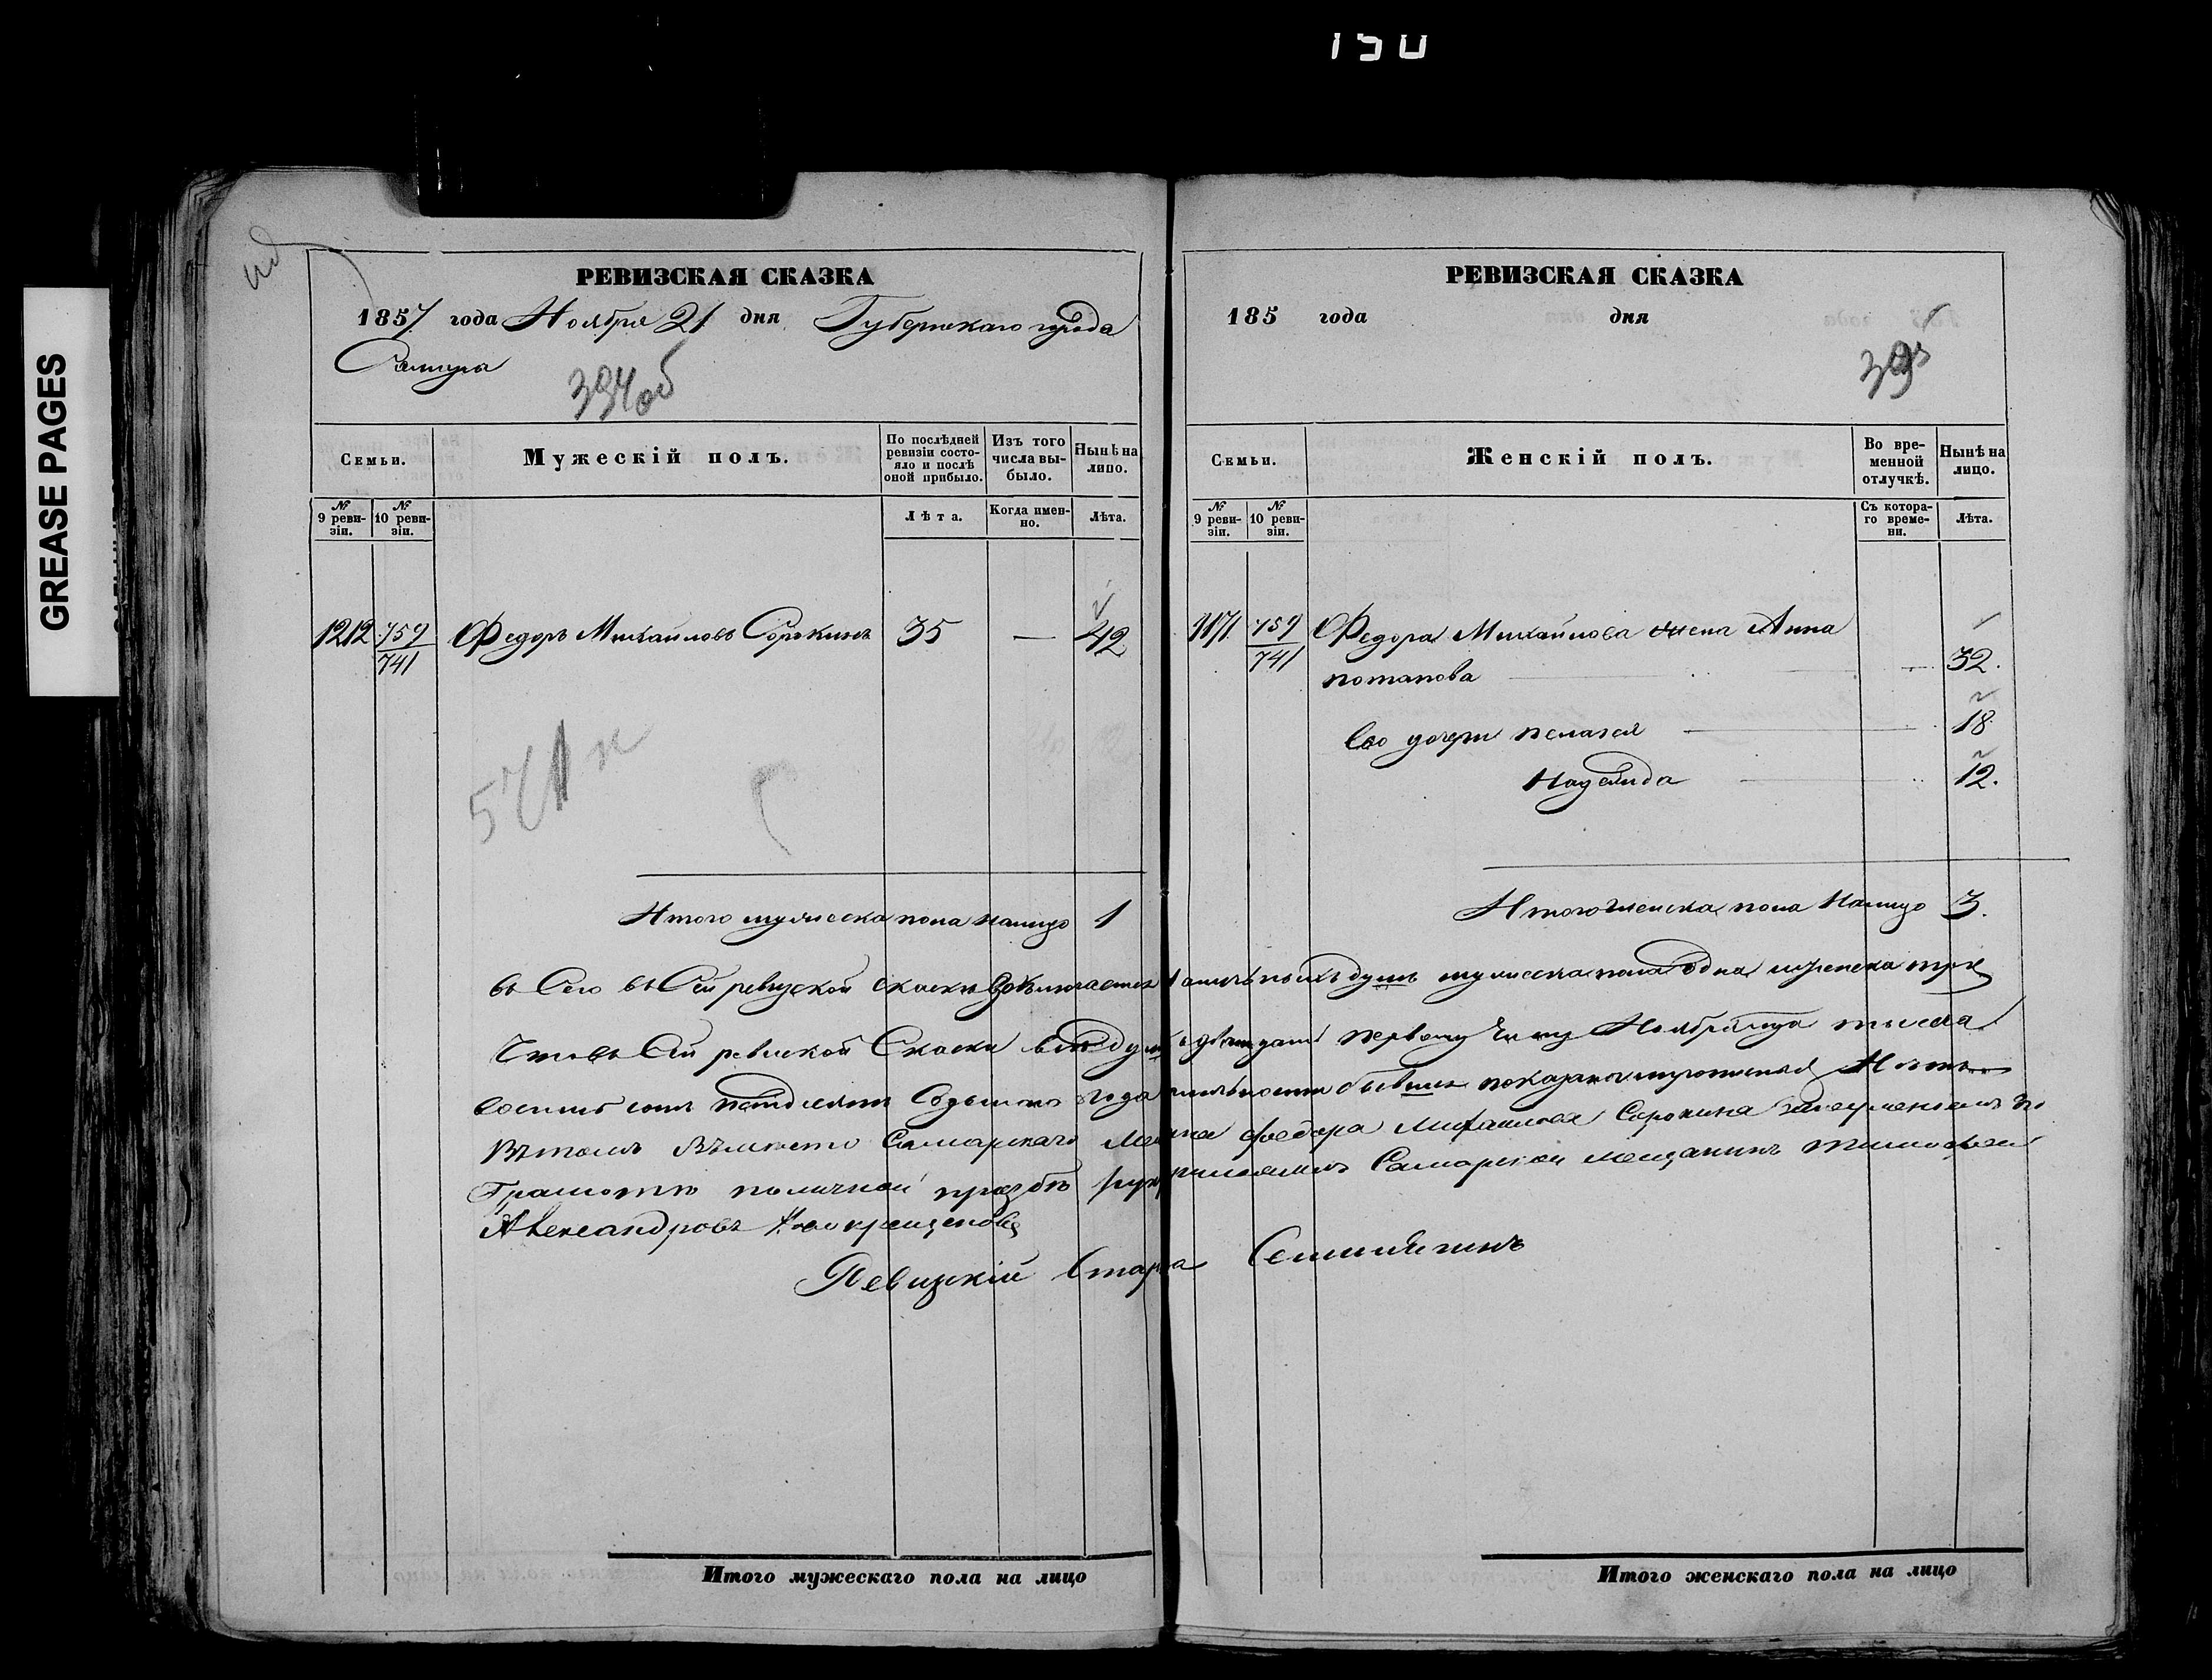 150
GREASE PAGES
РЕВИЗСКАЯ СКАЗКА
1857 года Ноября 21 дня Губернскаго города
Самары
394об
Семьи.
Мужескій полъ.
По послѣдней ревизіи состояло и послѣ оной прибыло.
Изъ того числа выбыло.
Нынѣ на лицо.
№ 9 ревизіи.
№ 10 ревизіи.
Лѣта.
Когда именно.
Лѣта.
1212 759/741 Федоръ Михайловъ Сорокинъ 35 — 42
Итого мужеска пола налицо 1
РЕВИЗСКАЯ СКАЗКА
185 года дня
395
Семьи.
Женскій полъ.
Во временной отлучкѣ.
Нынѣ на лицо.
№ 9 ревизіи.
№ 10 ревизіи.
Съ котораго времени.
Лѣта.
1171 759/741 Федора Михайлова жена Анна
потапова 32.
Его дочери пелагея 18
Надежда 12.
Итого женска пола налицо 3.
въ Сей ревизской скаски Заключается наличныхъ душъ мужеска пола одна женска три
Что въ Сей ревиской Скаски первому числу Ноября тысеча
восемь сотъ пятдесятъ Седьмаго года показаны
Самарскаго федора Михаилова Сорокина
Грамоте поличной прозбѣ Самарской мещанинъ тимофей
Александровъ
Ревизкій Староста
Итого мужескаго пола на лицо
Итого женскаго пола на лицо